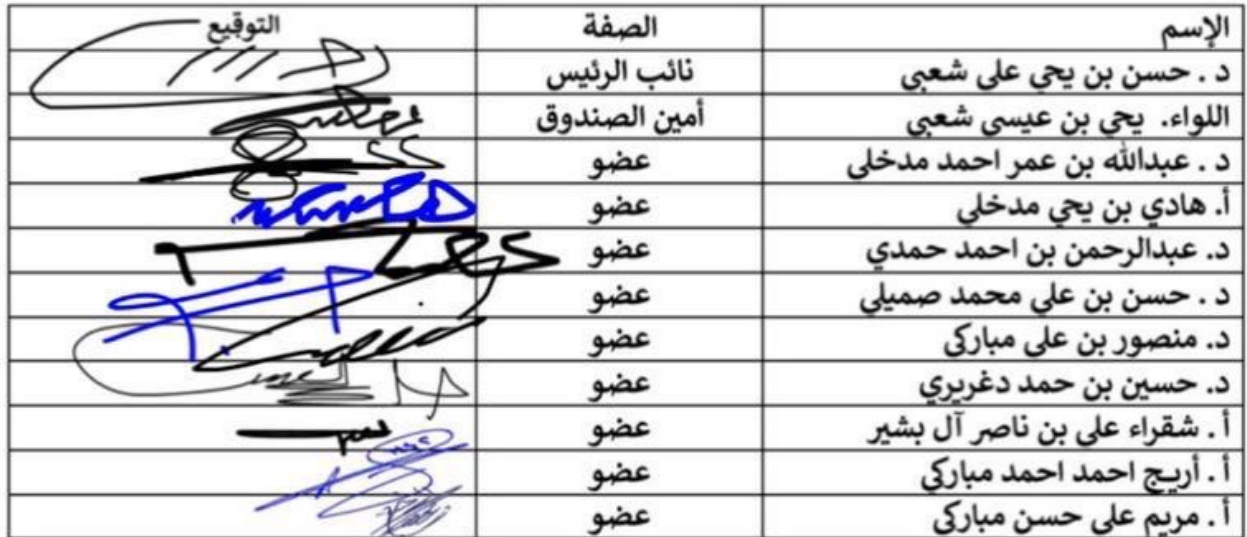 الإسم الصفة التوقيع
د . حسن بن يحي على شعبي نائب الرئيس
اللواء. يحي بن عيسى شعبي أمين الصندوق
د . عبدالله بن عمر احمد مدخلي عضو
أ. هادي بن يحي مدخلي عضو
د. عبدالرحمن بن احمد حمدي عضو
د . حسن بن علي محمد صميلي عضو
د. منصور بن علي مباركي عضو
د. حسين بن حمد دغريري عضو
أ . شقراء علي بن ناصر آل بشير عضو
أ . أريج احمد احمد مباركي عضو
أ . مريم علي حسن مباركي عضو